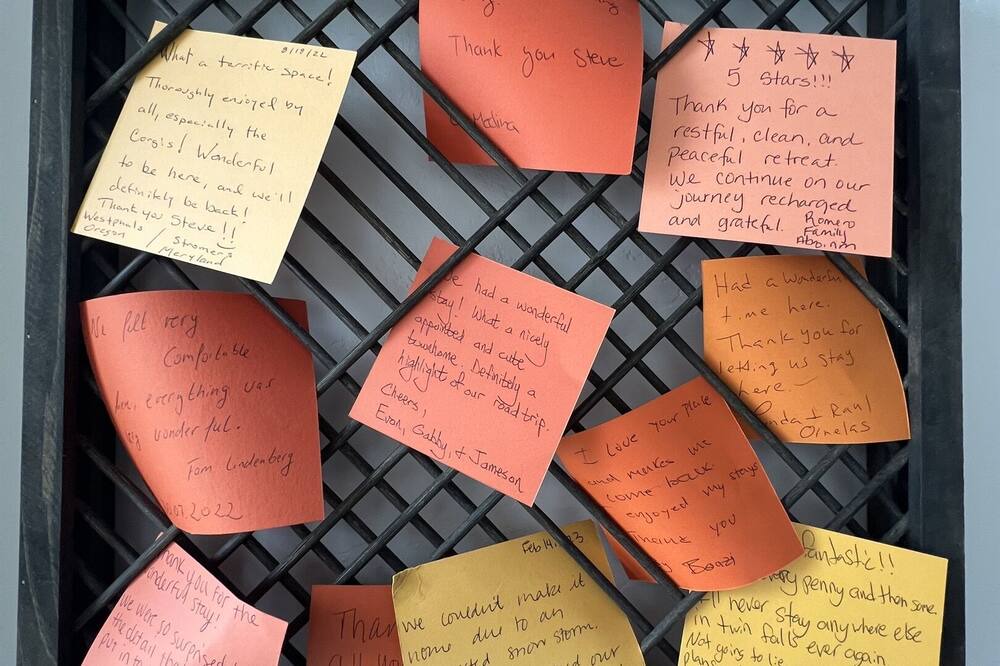 8/18/22
What a terrific space!
Thoroughly enjoyed by
all, especially the
Corgis! Wonderful
to be here, and we'll
definitely be back!
Thank you Steve!!
Westphals / Stromers
Oregon Maryland
Thank you Steve
Medina
5 Stars!!!
Thank you for a
restful, clean, and
peaceful retreat.
We continue on our
journey recharged
and grateful.
Romero
Family
felt very
Comfortable
everything was
wonderful.
Tom Lindenberg
2022
we had a wonderful
stay! What a nicely
appointed and cute
townhome. Definitely a
highlight of our road trip.
Cheers,
Evan, Gabby, + Jameson
Had a wonderful
time here.
Thank you for
letting us stay
here.
+ Raul
Ornelas
I love your place
and makes me
come back
enjoyed my stays
Thank you
Thank you for the
wonderful stay!
We were so surprised
the detail
put in
Than
all
Feb 14
we couldn't make it
home due to an
snow storm.
our
Fantastic!!
every penny and then some
I'll never stay anywhere else
in twin falls ever again
Not going to lie